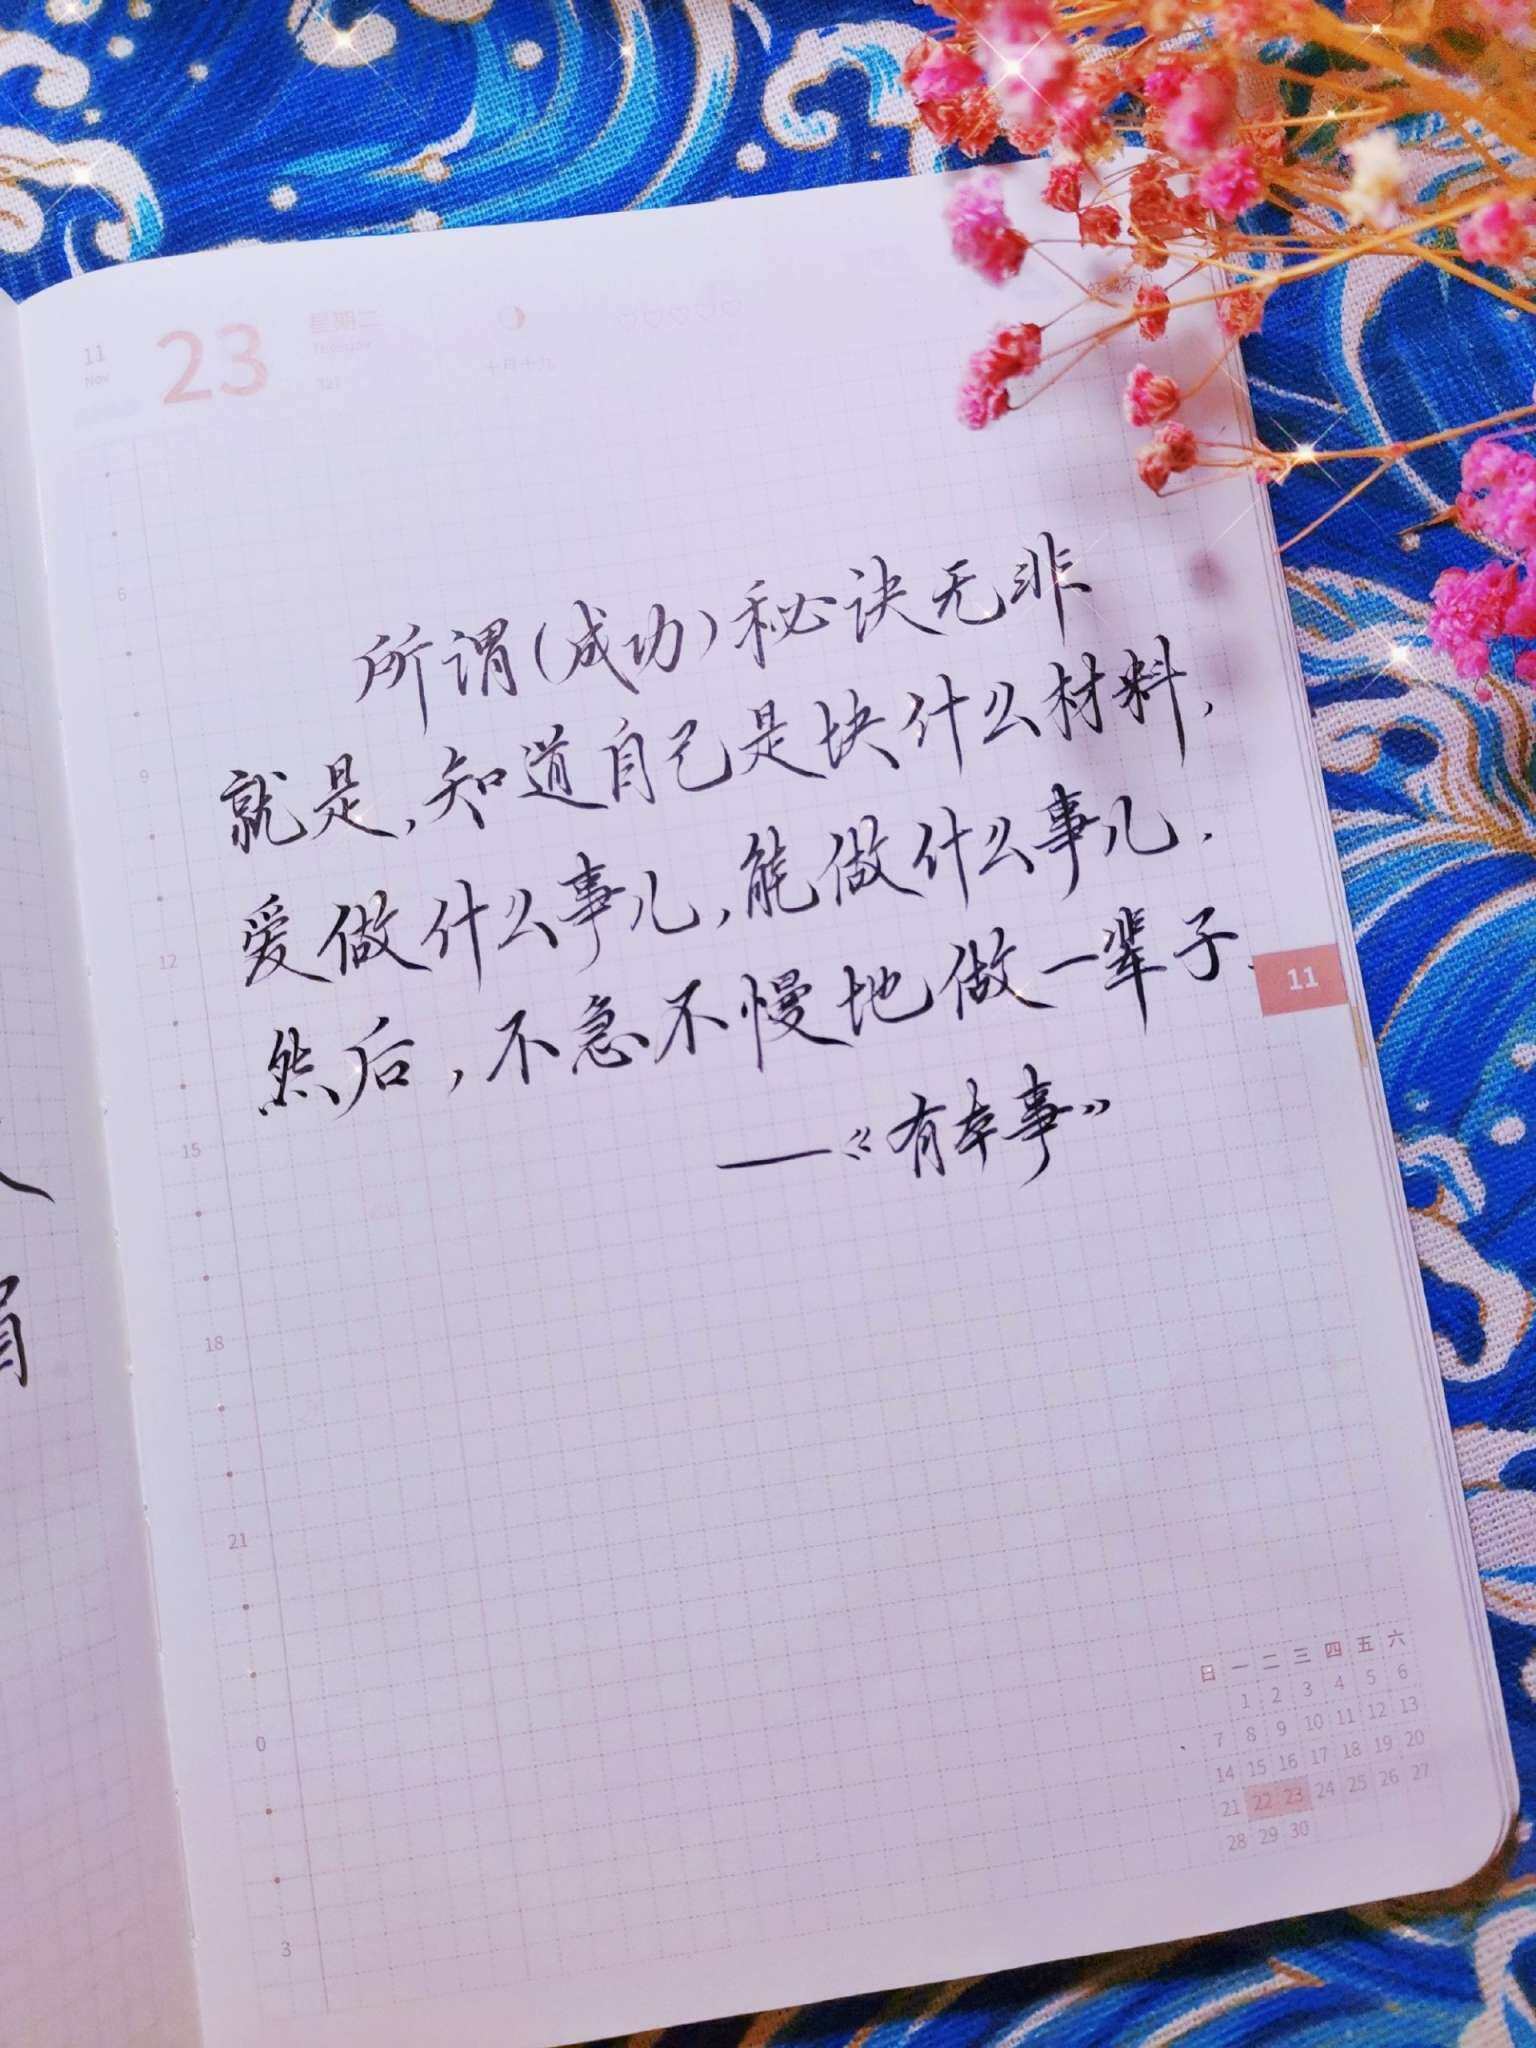 11
Nov
23
星期二
十月十九
所谓(成功)秘诀无非
就是,知道自己是块什么材料,
爱做什么事儿,能做什么事儿.
然后,不急不慢地做一辈子.
——《有本事》
6
9
12
15
18
21
0
3
11
日 一 二 三 四 五 六
1 2 3 4 5 6
7 8 9 10 11 12 13
14 15 16 17 18 19 20
21 22 23 24 25 26 27
28 29 30